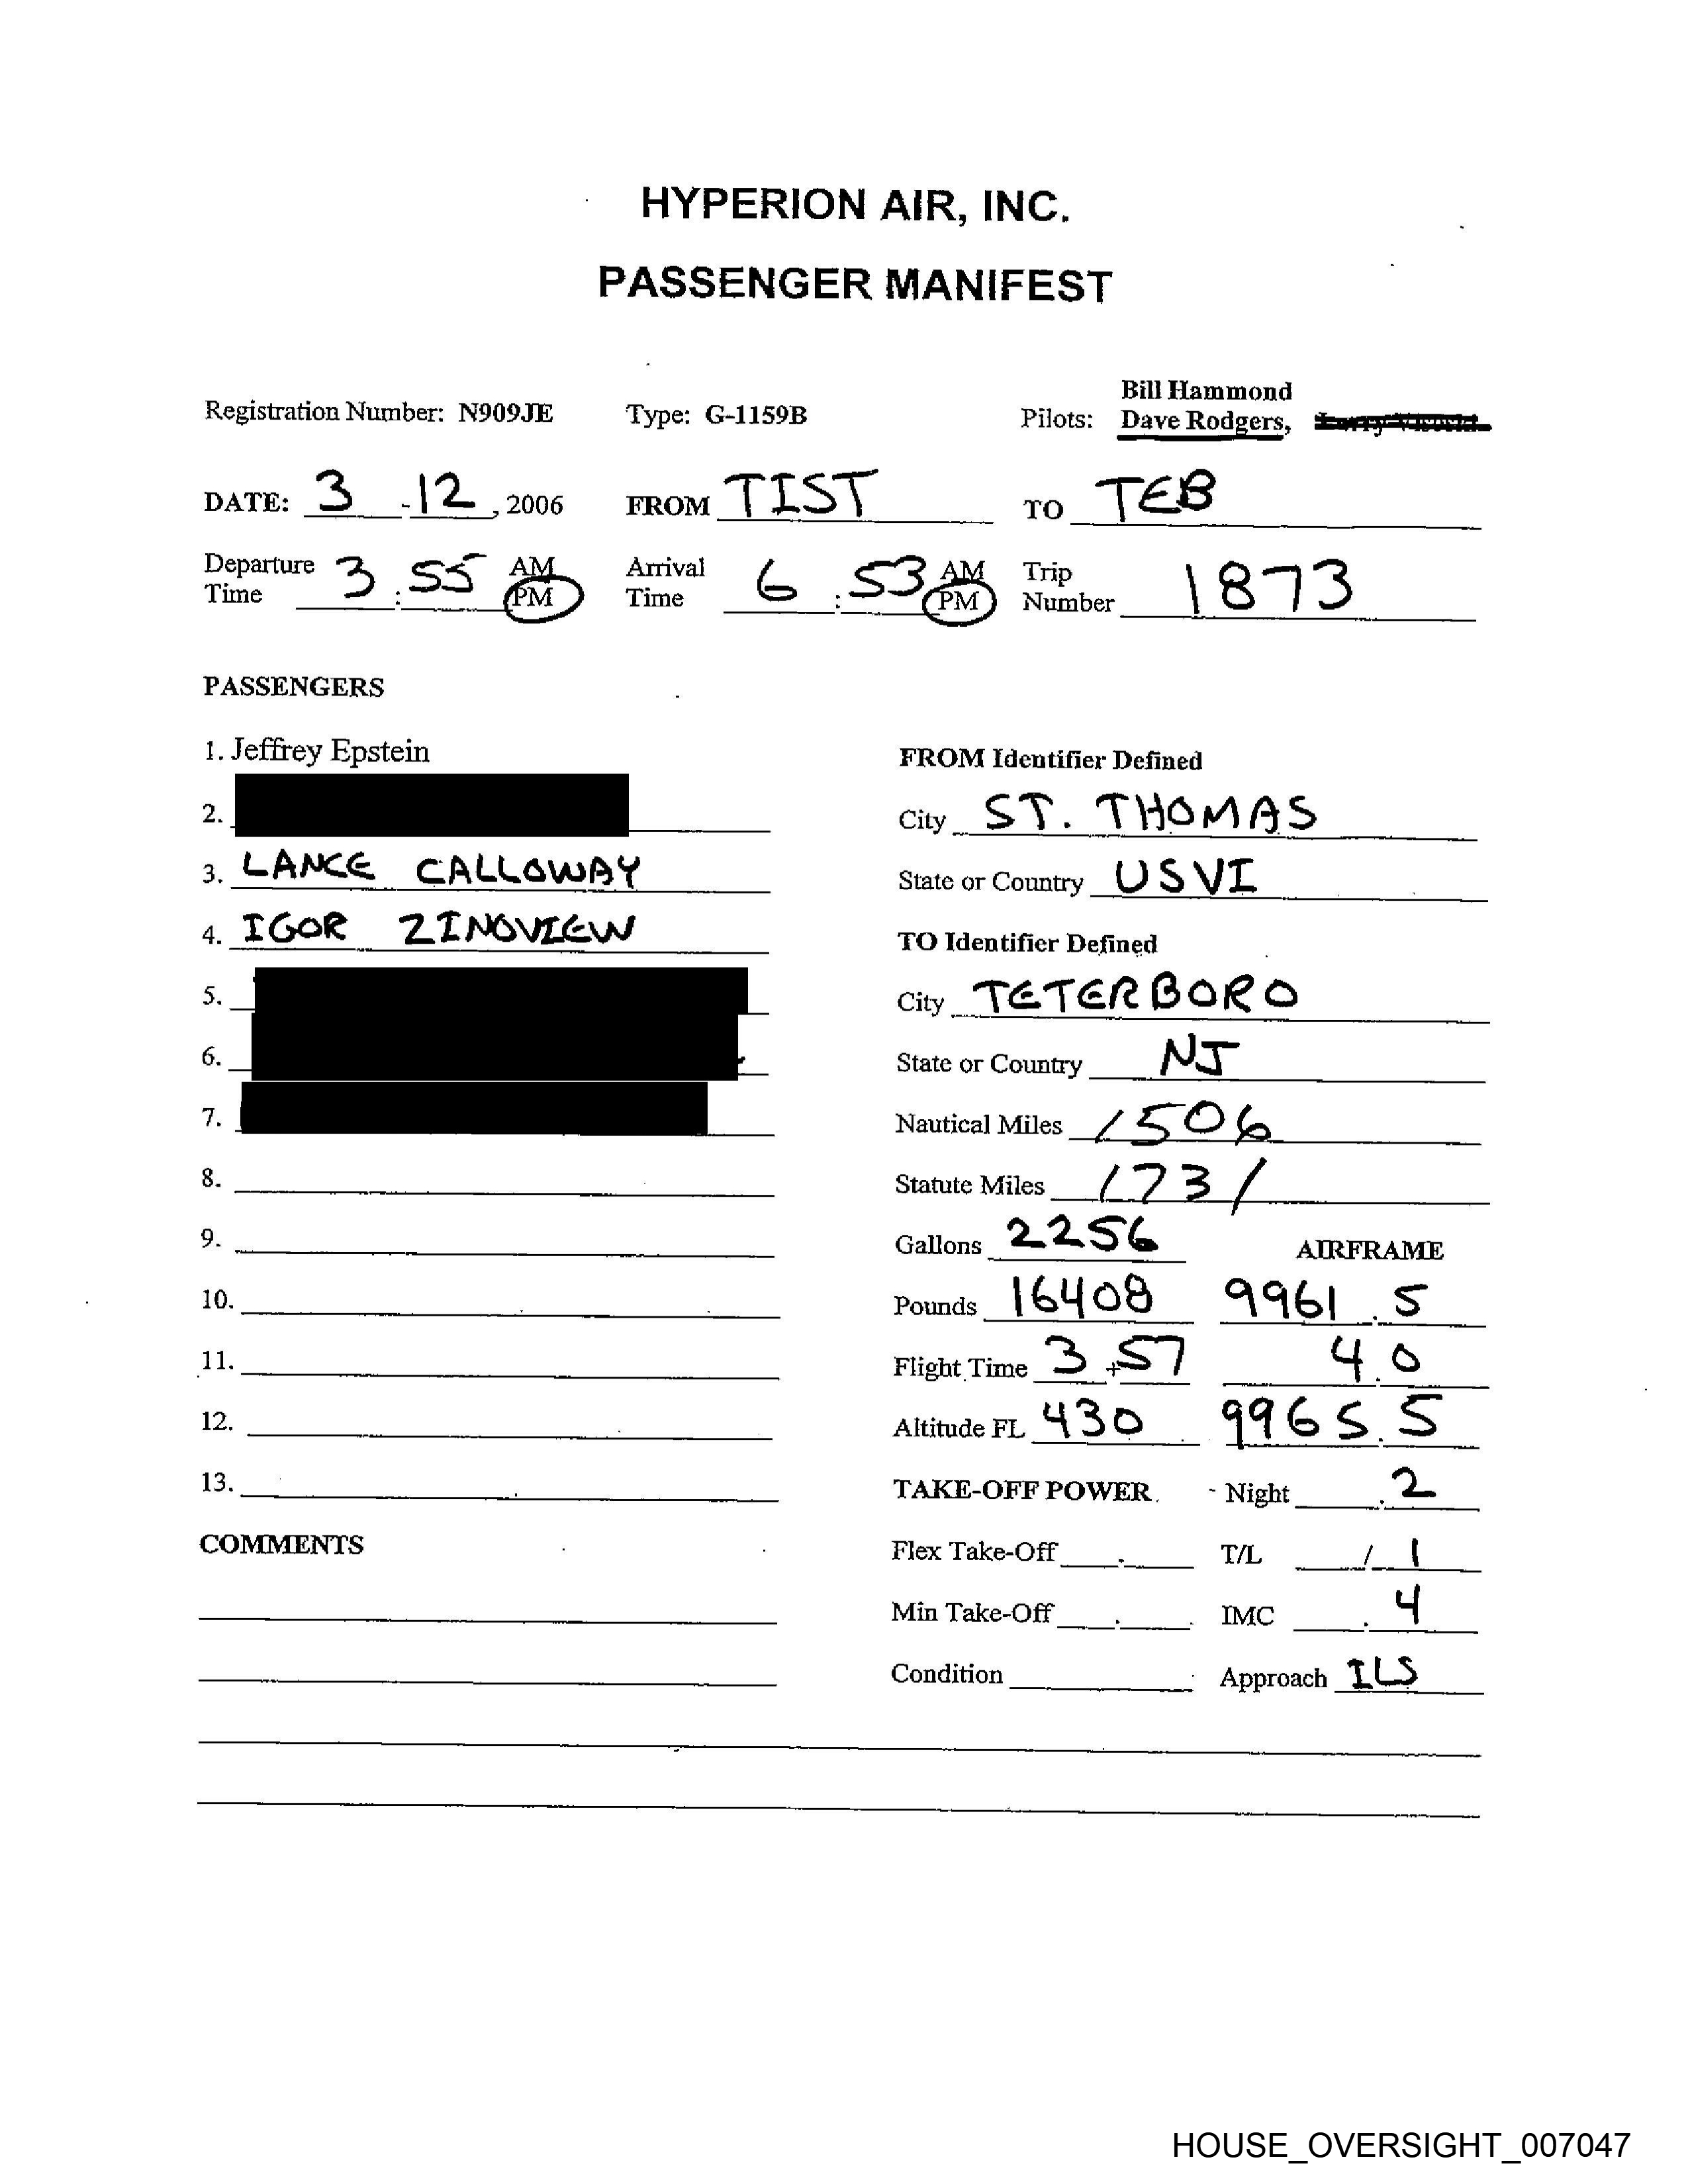 HYPERION AIR, INC.
PASSENGER MANIFEST
Bill Hammond
Registration Number: N909JE Type: G-1159B Pilots: Dave Rodgers,
DATE: 3 - 12, 2006 FROM TIST TO TEB
Departure Time 3 : 55 AM PM Arrival Time 6 : 53 AM PM Trip Number 1873
PASSENGERS
1. Jeffrey Epstein
2.
3. LANCE CALLOWAY
4. IGOR ZINOVIEW
5.
6.
7.
8.
9.
10.
11.
12.
13.
COMMENTS
FROM Identifier Defined
City ST. THOMAS
State or Country USVI
TO Identifier Defined
City TETERBORO
State or Country NJ
Nautical Miles 1506
Statute Miles 1731
Gallons 2256 AIRFRAME
Pounds 16408 9961.5
Flight Time 3 + 57 4.0
Altitude FL 430 9965.5
TAKE-OFF POWER - Night .2
Flex Take-Off . T/L / 1
Min Take-Off . IMC .4
Condition Approach ILS
HOUSE_OVERSIGHT_007047